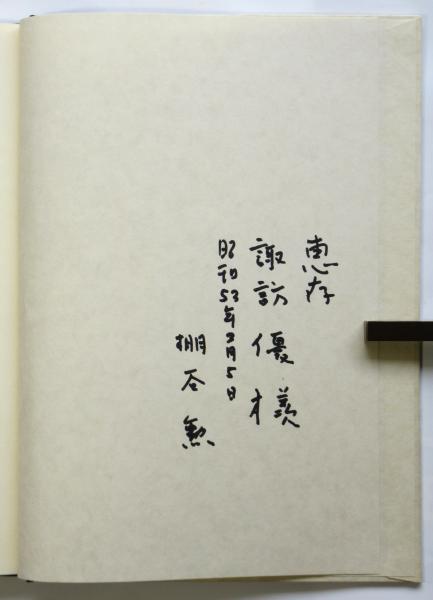 恵存
諏訪優様
昭和53年3月5日
棚谷勲